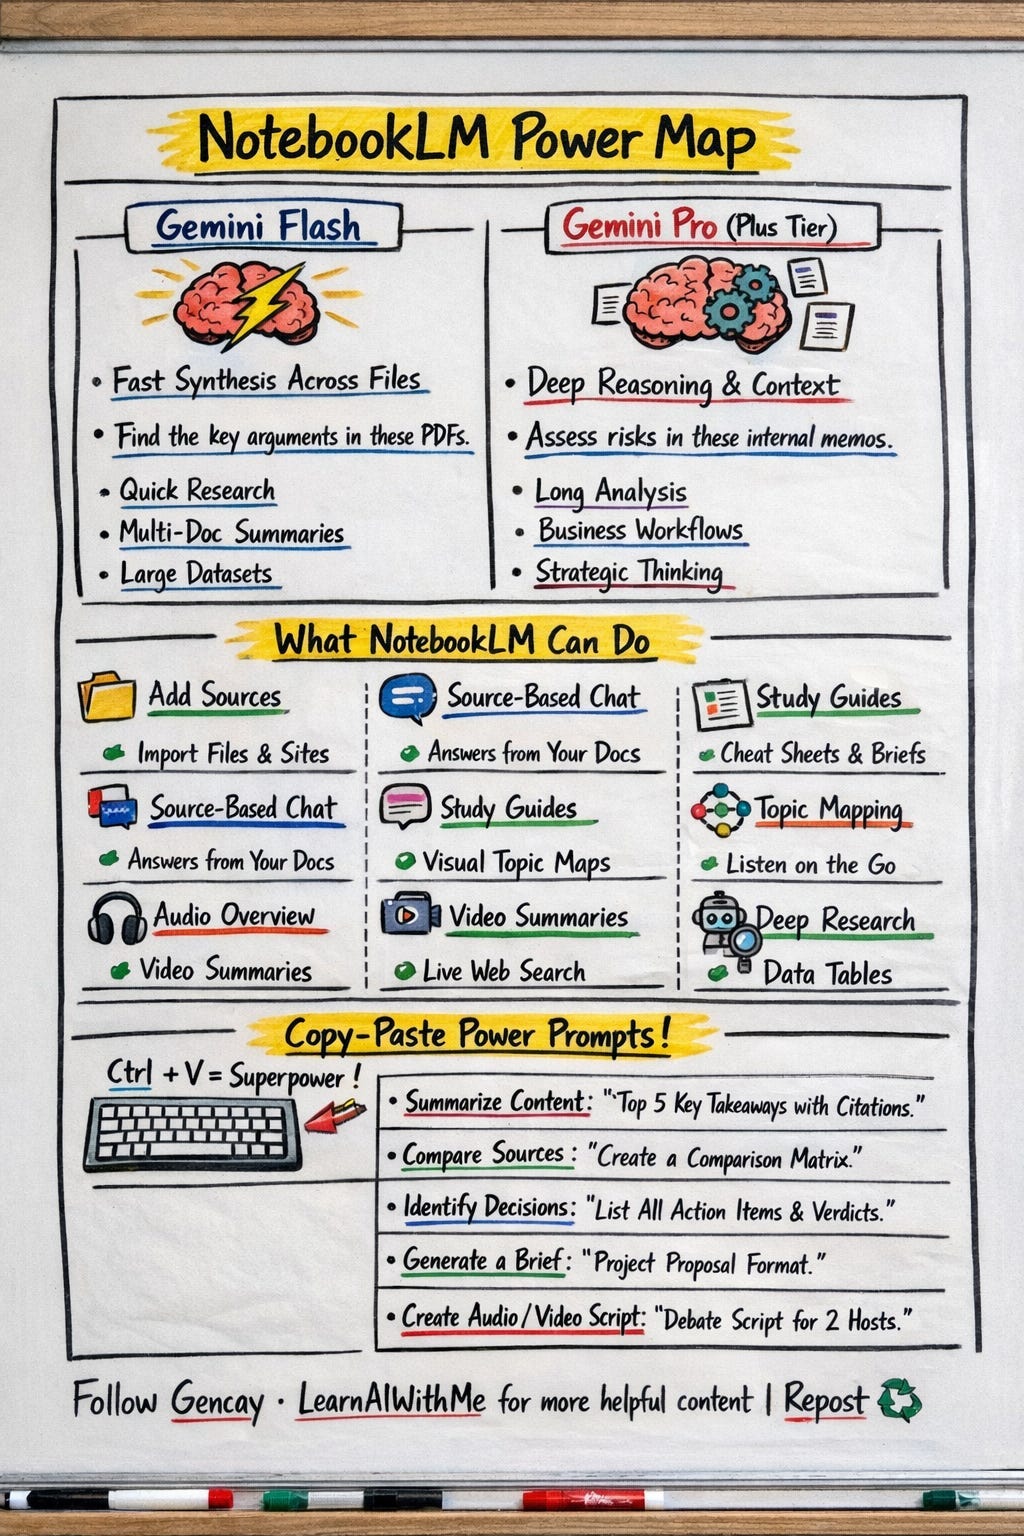 NotebookLM Power Map
Gemini Flash
• Fast Synthesis Across Files
• Find the key arguments in these PDFs.
• Quick Research
• Multi-Doc Summaries
• Large Datasets
Gemini Pro (Plus Tier)
• Deep Reasoning & Context
• Assess risks in these internal memos.
• Long Analysis
• Business Workflows
• Strategic Thinking
What NotebookLM Can Do
Add Sources
Import Files & Sites
Source-Based Chat
Answers from Your Docs
Study Guides
Cheat Sheets & Briefs
Source-Based Chat
Answers from Your Docs
Study Guides
Visual Topic Maps
Topic Mapping
Listen on the Go
Audio Overview
Video Summaries
Video Summaries
Live Web Search
Deep Research
Data Tables
Copy-Paste Power Prompts!
Ctrl + V = Superpower !
• Summarize Content: "Top 5 Key Takeaways with Citations."
• Compare Sources : "Create a Comparison Matrix."
• Identify Decisions: "List All Action Items & Verdicts."
• Generate a Brief: "Project Proposal Format."
• Create Audio/Video Script: "Debate Script for 2 Hosts."
Follow Gencay · LearnAIWithMe for more helpful content | Repost